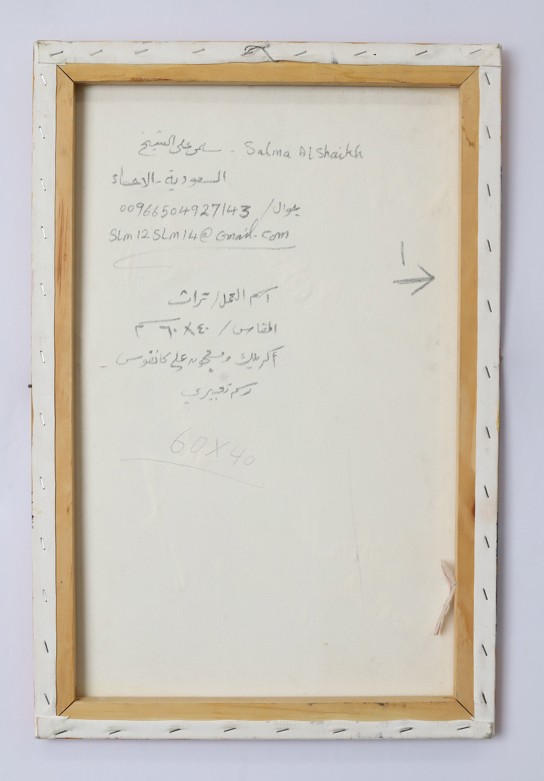 سلمى علي الشيخ - Salma AlShaikh
السعودية - الاحساء
جوال / 00966504927143
SLm12SLm14@Gmail.com
اسم العمل / تراث
المقاس / ٤٠ X ٦٠ سم
أكريليك و على كانفوس
رسم تعبيري
60 X 40